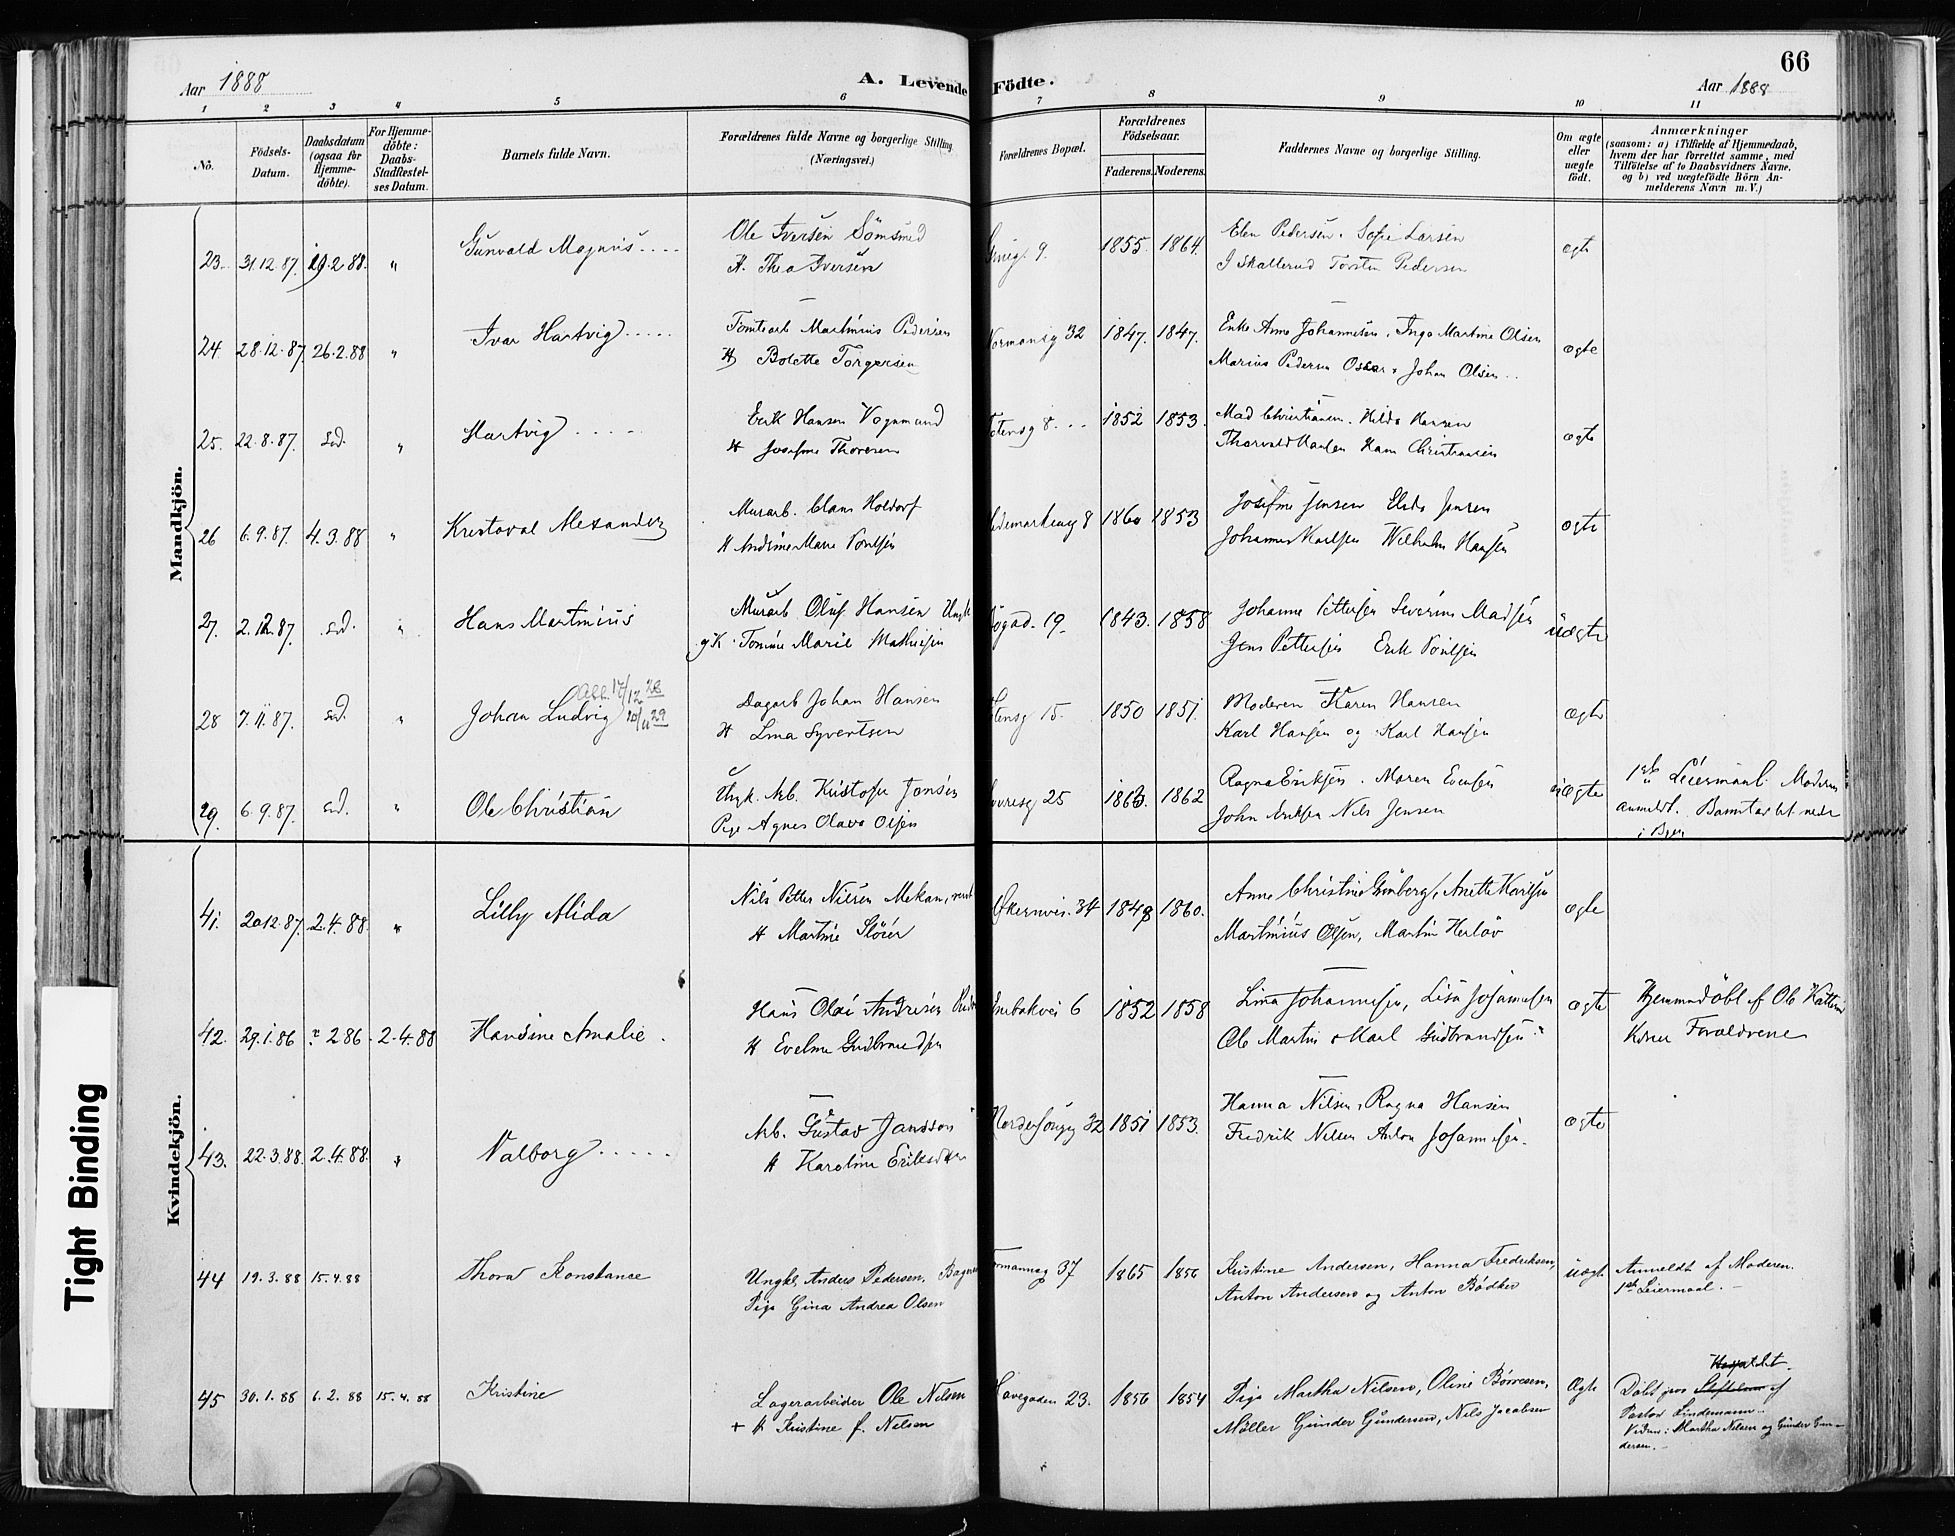 66
Aar 1888 A. Levende Födte. Aar 1888
1 2 3 4 5 6 7 8 9 10 11
No. Födsels-Datum. Daabsdatum (ogsaa for Hjemmedöbte). For Hjemmedöbte: Daabs-Stadfæstelses Datum. Barnets fulde Navn. Forældrenes fulde Navne og borgerlige Stilling. (Næringsvei.) Forældrenes Bopæl. Forældrenes Födselsaar. Faderens. Moderens. Faddernes Navne og borgerlige Stilling. Om ægte eller uægte födt. Anmærkninger (saasom: a) i Tilfælde af Hjemmedaab, hvem der har forrettet samme, med Tilföielse af to Daabsvidners Navne, og b) ved uægtefödte Börn Anmelderens Navn m. V.)
Mandkjön.
23. 31.12.87. 19.2.88. " Gunvald Magnus Ole Iversen 9. 1855. 1864. Elen Pedersen. Sofie Larsen ægte
H. Thea Iversen J Skallerud Torsten Pedersen
24. 28.12.87. 26.2.88 " Ivar Hartvig Tomtearb Martinius Pedersen Normansg 32 1847. 1847. Enke Anne Johannesen, Inga Martine Olsen ægte
H Bolette Torgersen Marius Pedersen Oscar & Johan Olsen
25. 22.8.87. sd. " Hartvig Erik Hansen Vognmand 8 1852 1853. Mad Christiansen. Hilda Hansen ægte
H Josefine Thoresen Thorvald Hansen Hans Christiansen
26 6.9.87. 4.3.88 " Kristoval Alexander Murarb. Claus Holdorf 8 1860 1853 Josefine Jensen Elida Jensen ægte
H Andrine Marie Poulsen Johannes Karlsen Wilhelm Hansen
27. 2.12.87. sd. " Hans Martinius Murarb Oluf Hansen Ungk 19. 1843. 1858 Johanne Pettersen Severine Madsen uægte
gK. Tomine Marie Mathisen Jens Pettersen Erik Poulsen
28 7.11.87. sd. " Johan Ludvig Att. 17/12 28 Dagarb Johan Hansen 15. 1850 1851. Moderen Karen Hansen ægte
H Lina Syvertsen Karl Hansen og Karl Hansen
29. 6.9.87. sd. " Ole Christian Ungk. Arb. Kristofer Jonsen 25 1863. 1862 Ragna Eriksen. Maren Evensen uægte 1ste Leiermaal. Moderen
Pige Agnes Olava Olsen John Eriksen Nils Jensen anmeldt.
i Byen
Kvindekjön.
41. 20.12.87. 2.4.88. " Lilly Alida Nils Petter Nilsen Økernvei. 34 1848 1860. Anne Christine Grinberg, Anette Karlsen ægte
H Martine Martinius Olsen, Martin Herlov
42. 29.1.86 ? 2 86 2.4.88 Hansine Amalie Hans Olai Andresen Enebakvei 6 1852 1858 Lina Johannesen, Lisa Johannesen ægte Hjemmedöbt af
H Eveline Gudbrandsen Ole Martin & Karl Gudbrandsen Forældrene
43. 22.3.88. 2.4.88. " Valborg Arb. Gustav Jansson 32 1851 1853. Hanna Nilsen, Ragna Hansen ægte
H Karoline Fredrik Nilsen Anton Johannesen.
44 19.3.88 15.4.88 Thora Konstance Ungk, Anders Pedersen, Normannsg 37 1865 1856 Kristine Andersen, Hanna Fredriksen, uægte Anmeldt af Moderen.
Pige Gina Andrea Olsen Anton Andersen og Anton Bödker 1ste Leiermaal.
45 30.1.88 6.2.88 15.4.88 Kristine Lagerarbeider Ole Nilsen Havegaden 23. 1856 1854 Pige Martha Nilsen, Oline Børresen, Ægte Döbt paa af
+ H Kristine f. Nilsen Möller Gunder Gundersen, Nils Jacobsen Pastor Lindemann.
Vidner: Martha Nilsen og Gunder Gundersen.
Tight Binding